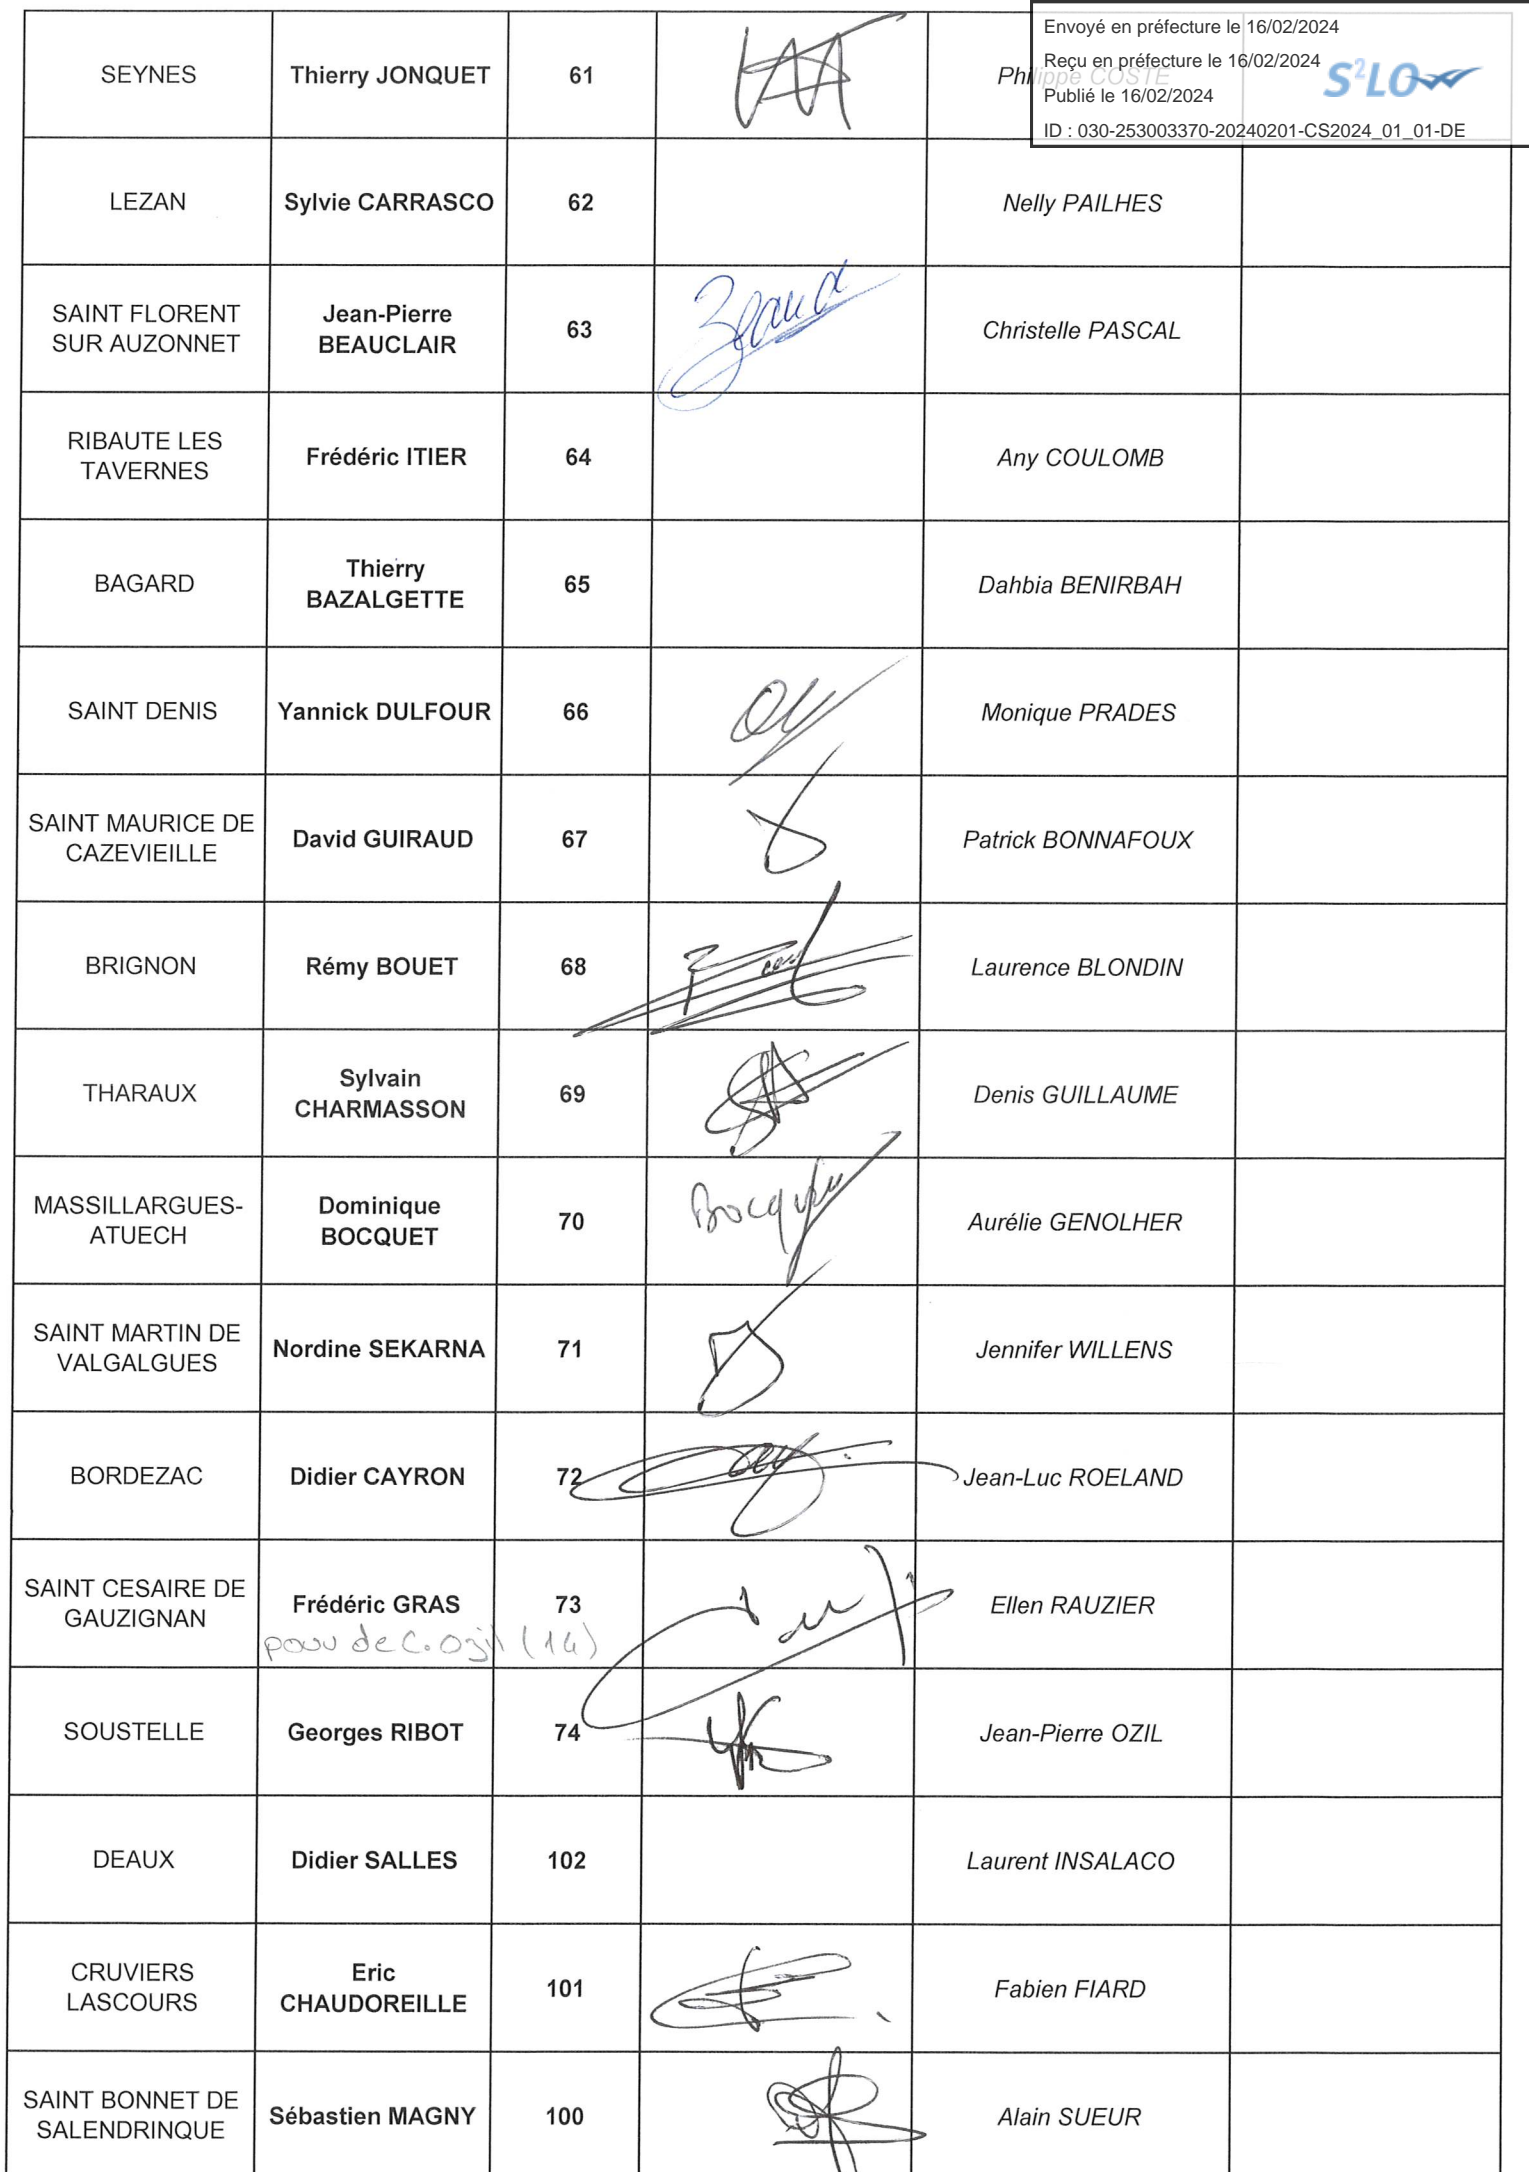 Envoyé en préfecture le 16/02/2024
Reçu en préfecture le 16/02/2024
Publié le 16/02/2024
ID : 030-253003370-20240201-CS2024_01_01-DE
S²LO
SEYNES Thierry JONQUET 61 Philippe COSTE
LEZAN Sylvie CARRASCO 62 Nelly PAILHES
SAINT FLORENT
SUR AUZONNET
Jean-Pierre
BEAUCLAIR
63
Christelle PASCAL
RIBAUTE LES
TAVERNES
Frédéric ITIER
64
Any COULOMB
BAGARD
Thierry
BAZALGETTE
65
Dahbia BENIRBAH
SAINT DENIS Yannick DULFOUR 66 Monique PRADES
SAINT MAURICE DE
CAZEVIEILLE
David GUIRAUD
67
Patrick BONNAFOUX
BRIGNON Rémy BOUET 68 Laurence BLONDIN
THARAUX
Sylvain
CHARMASSON
69
Denis GUILLAUME
MASSILLARGUES-
ATUECH
Dominique
BOCQUET
70
Bocquet
Aurélie GENOLHER
SAINT MARTIN DE
VALGALGUES
Nordine SEKARNA
71
Jennifer WILLENS
BORDEZAC Didier CAYRON 72 Jean-Luc ROELAND
SAINT CESAIRE DE
GAUZIGNAN
Frédéric GRAS
73
pouv de C. Ozil (14)
Ellen RAUZIER
SOUSTELLE Georges RIBOT 74 Jean-Pierre OZIL
DEAUX Didier SALLES 102 Laurent INSALACO
CRUVIERS
LASCOURS
Eric
CHAUDOREILLE
101
Fabien FIARD
SAINT BONNET DE
SALENDRINQUE
Sébastien MAGNY
100
Alain SUEUR